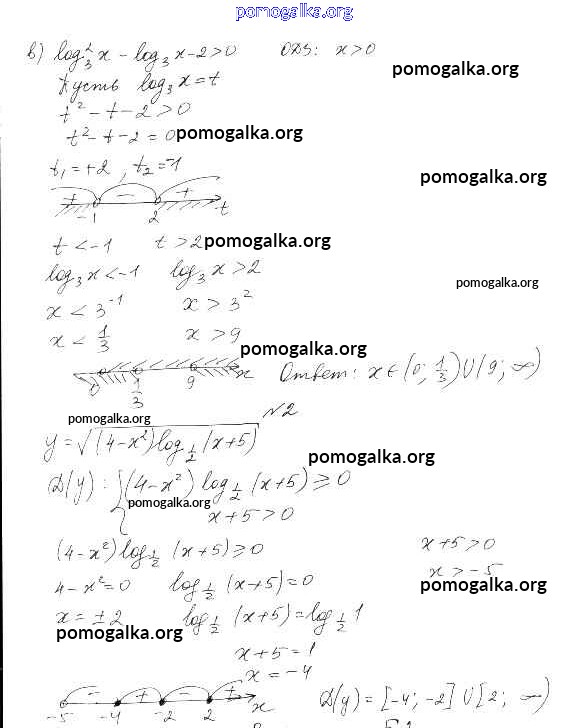 pomogalka.org
в) log₃²x − log₃x − 2 > 0 ОДЗ: x > 0
pomogalka.org
Пусть log₃x = t
t² − t − 2 > 0
t² − t − 2 = 0 pomogalka.org
t₁ = +2, t₂ = −1
pomogalka.org
+ − +
−1 2 t
t < −1 t > 2 pomogalka.org
log₃x < −1 log₃x > 2
pomogalka.org
x < 3⁻¹ x > 3²
x < 1/3 x > 9
pomogalka.org
0 1/3 9 x Ответ: x ∈ (0; 1/3) ∪ (9; ∞)
№2
pomogalka.org
y = √((4−x²)log_{1/2}(x+5))
pomogalka.org
D(y): { (4−x²)log_{1/2}(x+5) ≥ 0
pomogalka.org
x+5 > 0
(4−x²)log_{1/2}(x+5) ≥ 0 x+5 > 0
x > −5
4−x² = 0 log_{1/2}(x+5) = 0 pomogalka.org
x = ±2 log_{1/2}(x+5) = log_{1/2}1
pomogalka.org
x+5 = 1
x = −4
− + − +
−5 −4 −2 2 x D(y) = [−4; −2] ∪ [2; ∞)